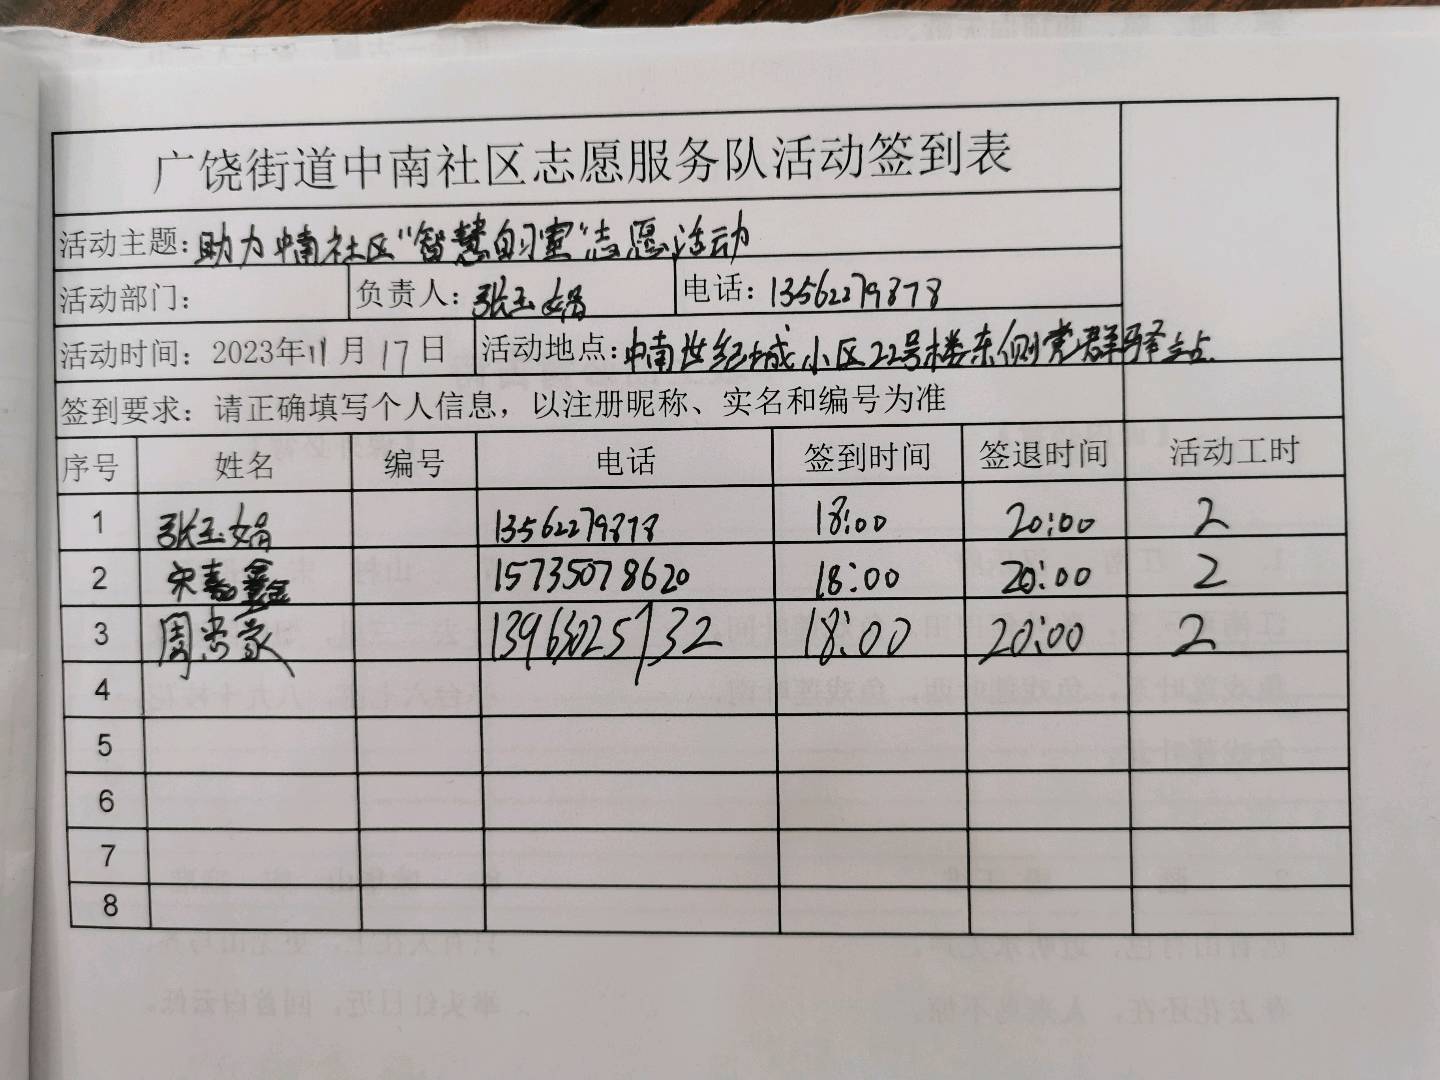 广饶街道中南社区志愿服务队活动签到表
活动主题：助力中南社区“智慧自习室”志愿活动
活动部门： 负责人：张玉娟 电话：13562279878
活动时间：2023年11月17日 活动地点：中南世纪城小区22号楼东侧党群驿站
签到要求：请正确填写个人信息，以注册昵称、实名和编号为准
序号 姓名 编号 电话 签到时间 签退时间 活动工时
1 张玉娟 13562279878 18:00 20:00 2
2 宋嘉鑫 15735078620 18:00 20:00 2
3 周忠蒙 13963025732 18:00 20:00 2
4
5
6
7
8